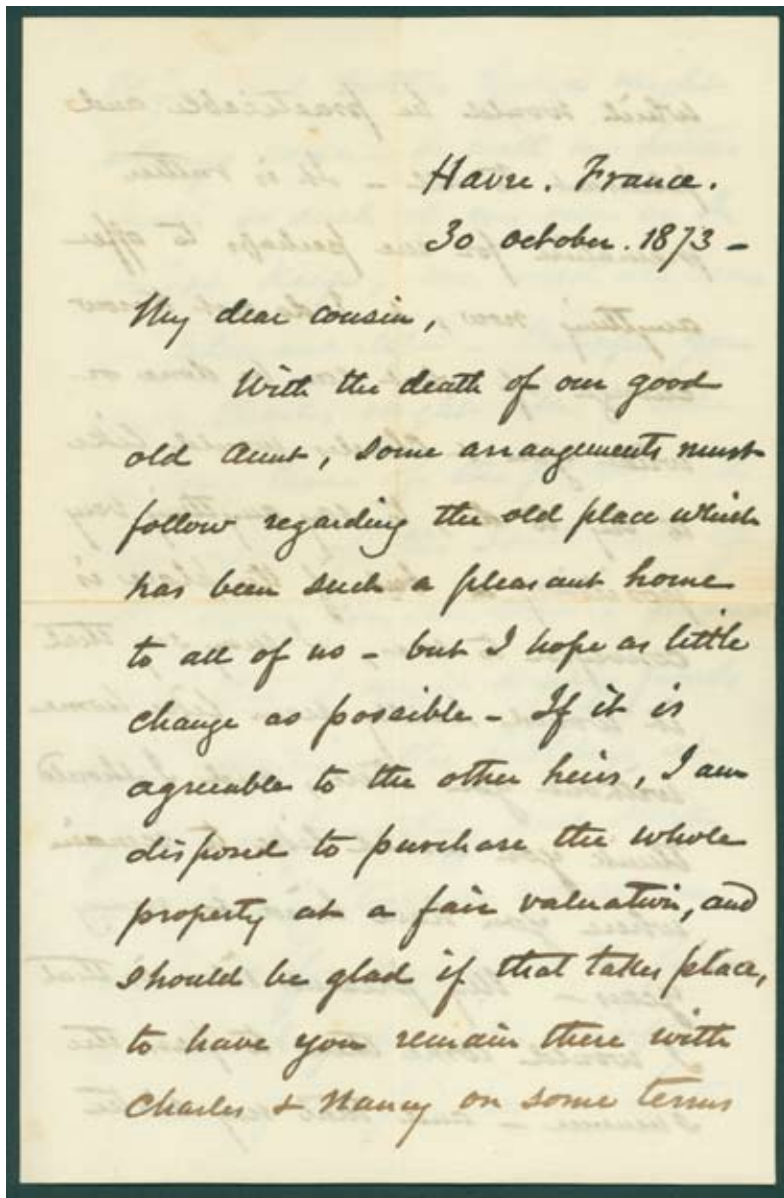 Havre. France.
30 October. 1873 –
My dear cousin,
With the death of our good
old Aunt, some arrangements must
follow regarding the old place which
has been such a pleasant home
to all of us – but I hope as little
change as possible – If it is
agreeable to the other heirs, I am
disposed to purchase the whole
property at a fair valuation, and
should be glad if that takes place,
to have you remain there with
Charles & Nancy on some terms